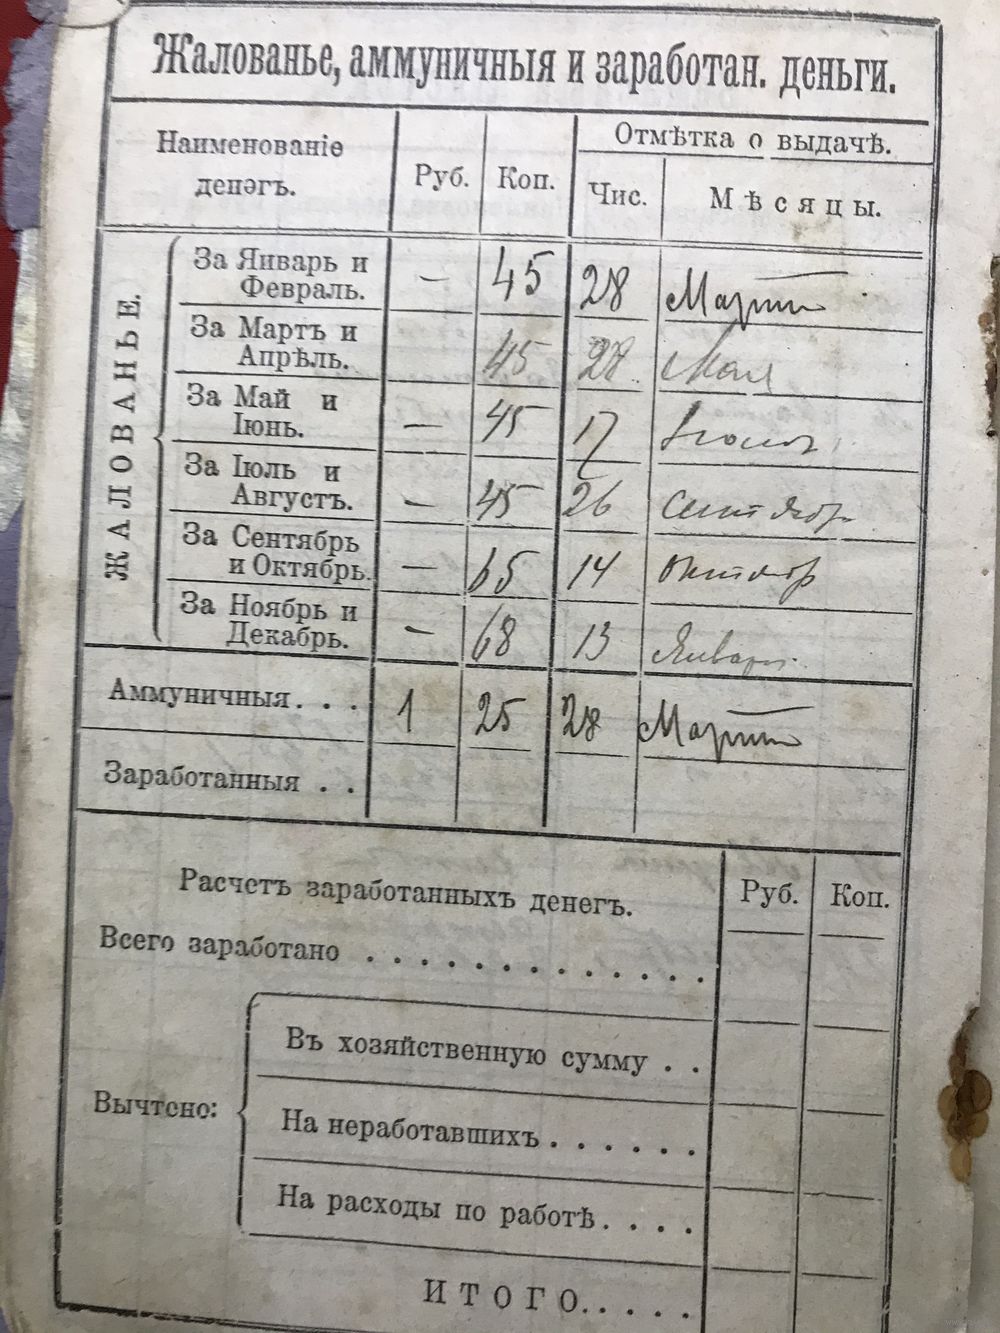 Жалованье, аммуничныя и заработан. деньги.
Наименованіе денэгъ. Руб. Коп. Отмѣтка о выдачѣ.
Чис. Мѣсяцы.
ЖАЛОВАНЬЕ.
За Январь и Февраль. — 45 28 Мартъ
За Мартъ и Апрѣль. 45 28 Мая
За Май и Іюнь. — 45 17 Іюля
За Іюль и Августъ. — 45 26 Сентябр
За Сентябрь и Октябрь. — 65 14 Октябр
За Ноябрь и Декабрь. — 68 13 Январь
Аммуничныя. . . 1 25 28 Мартъ
Заработанныя . .
Расчетъ заработанныхъ денегъ. Руб. Коп.
Всего заработано . . . . . . . . . . . . .
Вычтено:
Въ хозяйственную сумму . .
На неработавшихъ . . . . . .
На расходы по работѣ. . . . .
ИТОГО. . . . .